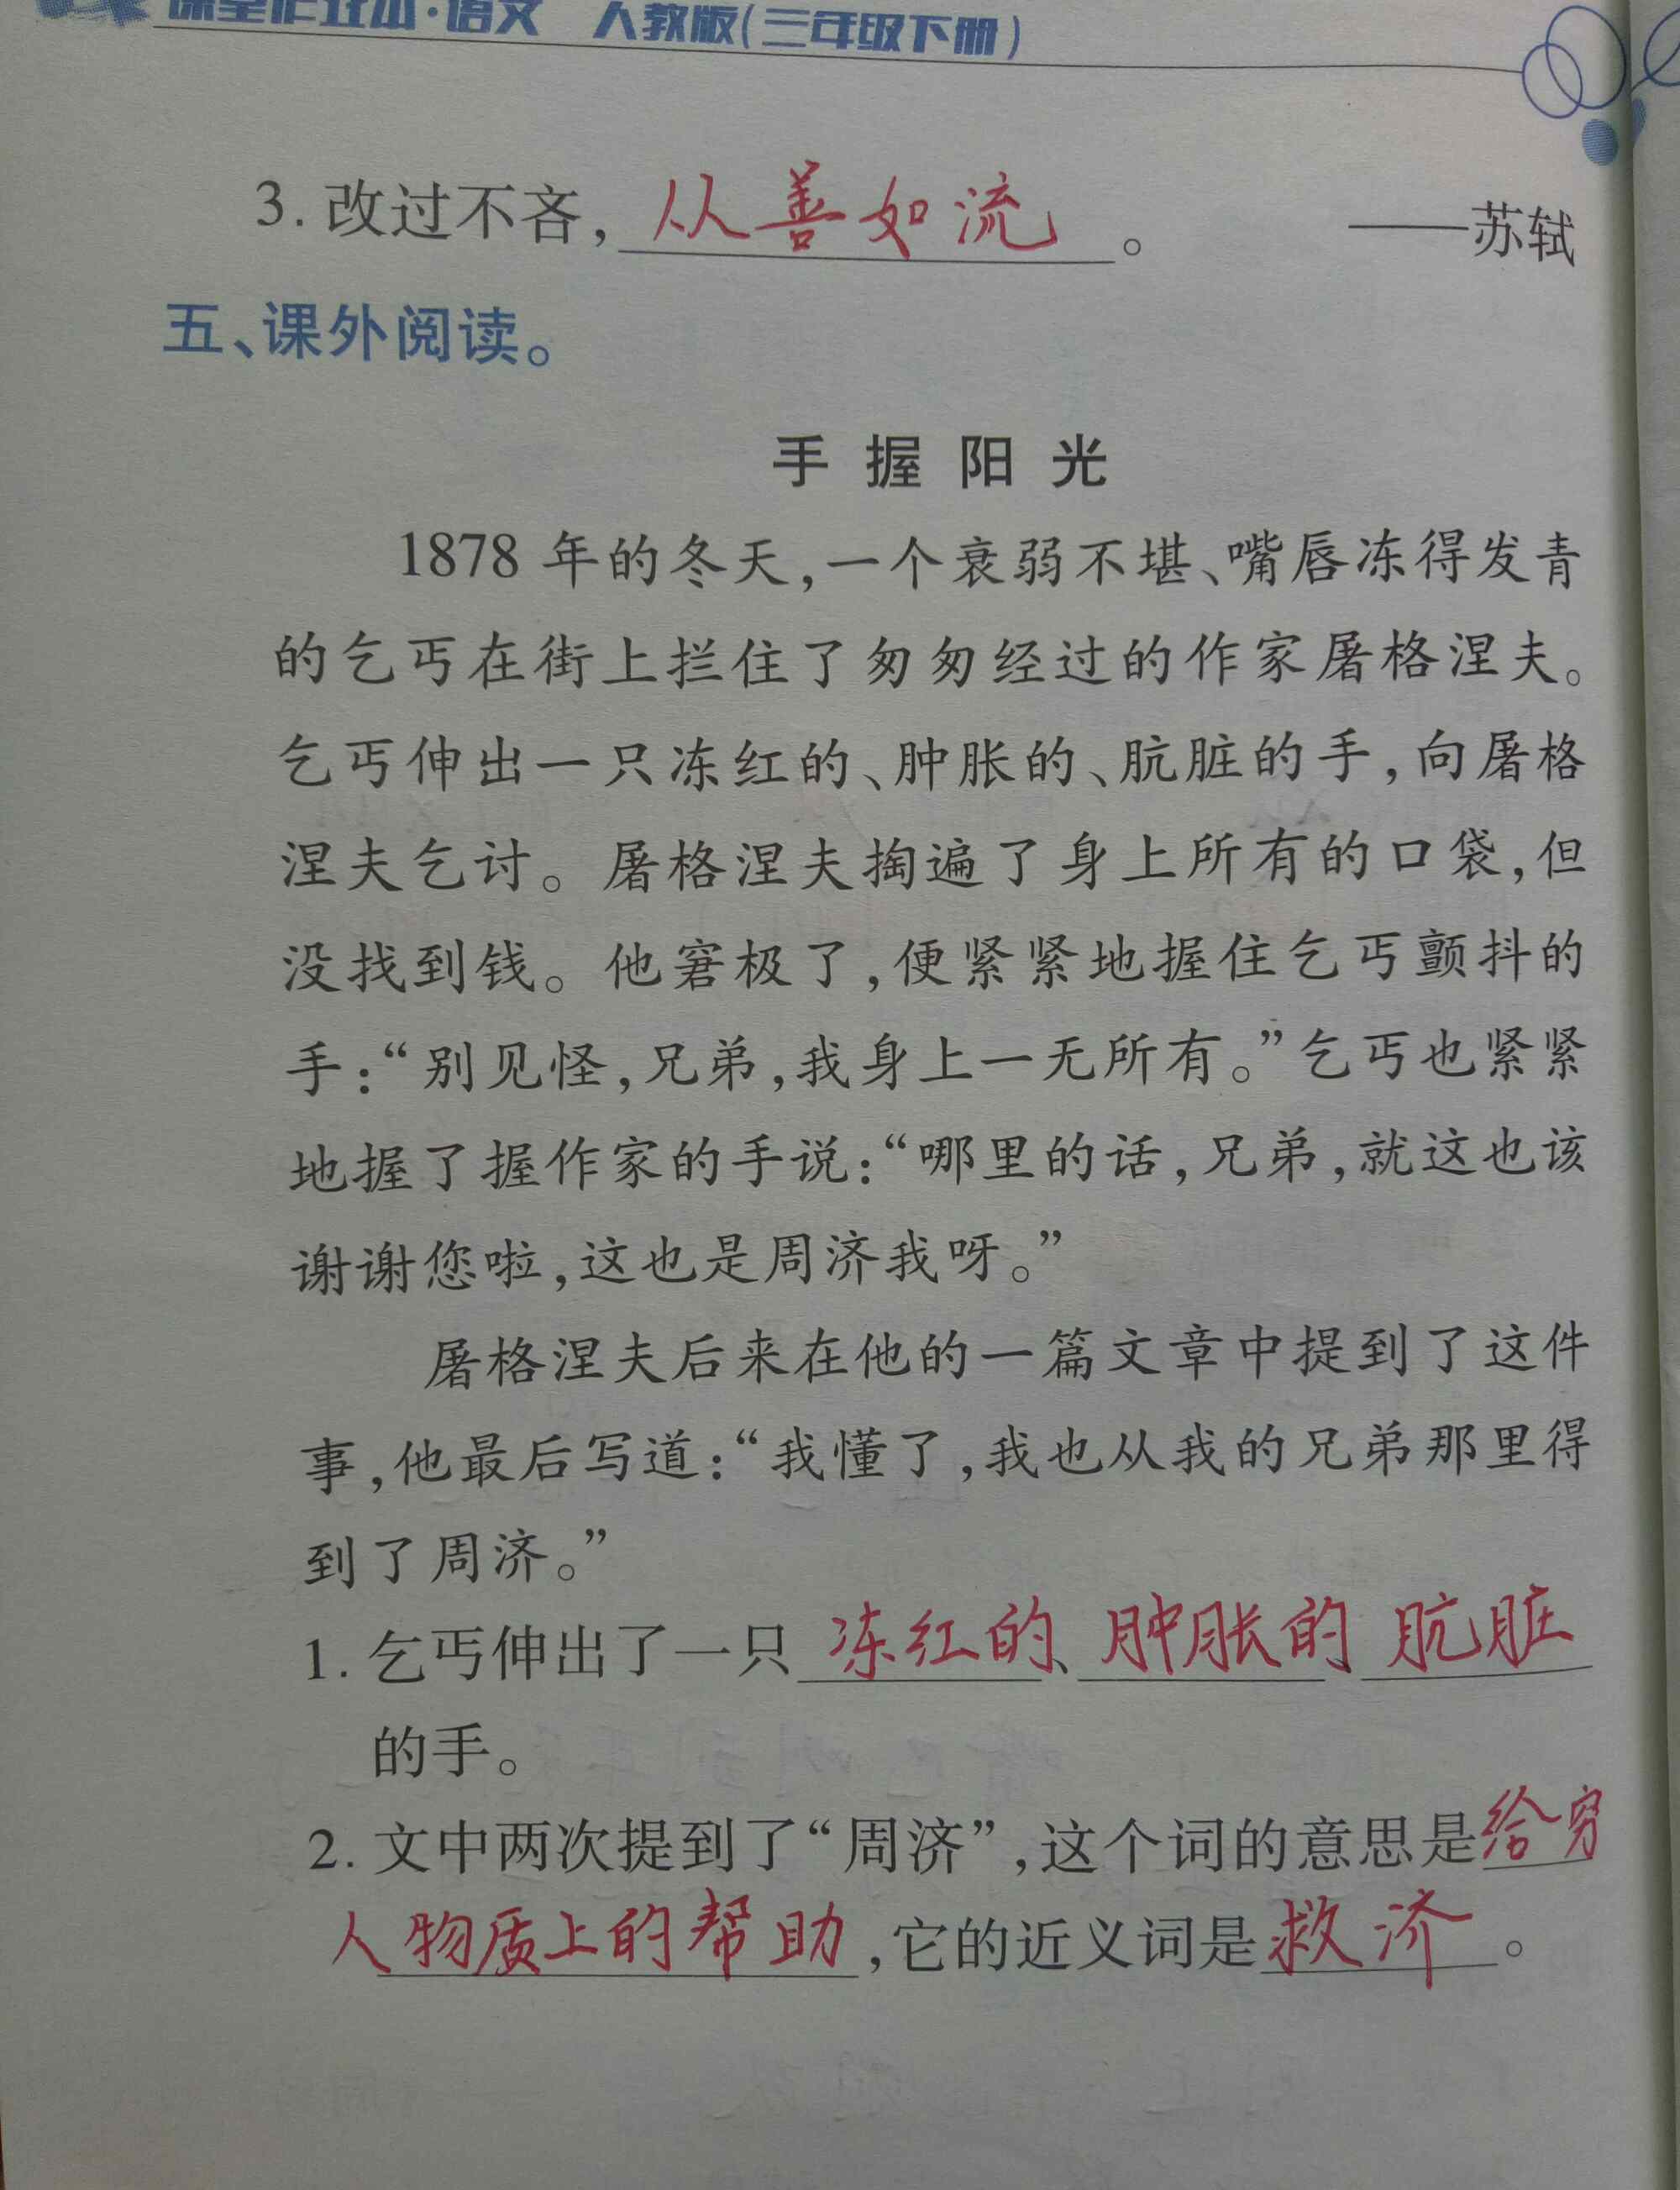 课堂作业本·语文 人教版(三年级下册)
3. 改过不吝,从善如流。 ——苏轼
五、课外阅读。
手握阳光
1878 年的冬天,一个衰弱不堪、嘴唇冻得发青
的乞丐在街上拦住了匆匆经过的作家屠格涅夫。
乞丐伸出一只冻红的、肿胀的、肮脏的手,向屠格
涅夫乞讨。屠格涅夫掏遍了身上所有的口袋,但
没找到钱。他窘极了,便紧紧地握住乞丐颤抖的
手:“别见怪,兄弟,我身上一无所有。”乞丐也紧紧
地握了握作家的手说:“哪里的话,兄弟,就这也该
谢谢您啦,这也是周济我呀。”
屠格涅夫后来在他的一篇文章中提到了这件
事,他最后写道:“我懂了,我也从我的兄弟那里得
到了周济。”
1. 乞丐伸出了一只冻红的、肿胀的、肮脏
的手。
2. 文中两次提到了“周济”,这个词的意思是给穷
人物质上的帮助,它的近义词是救济。